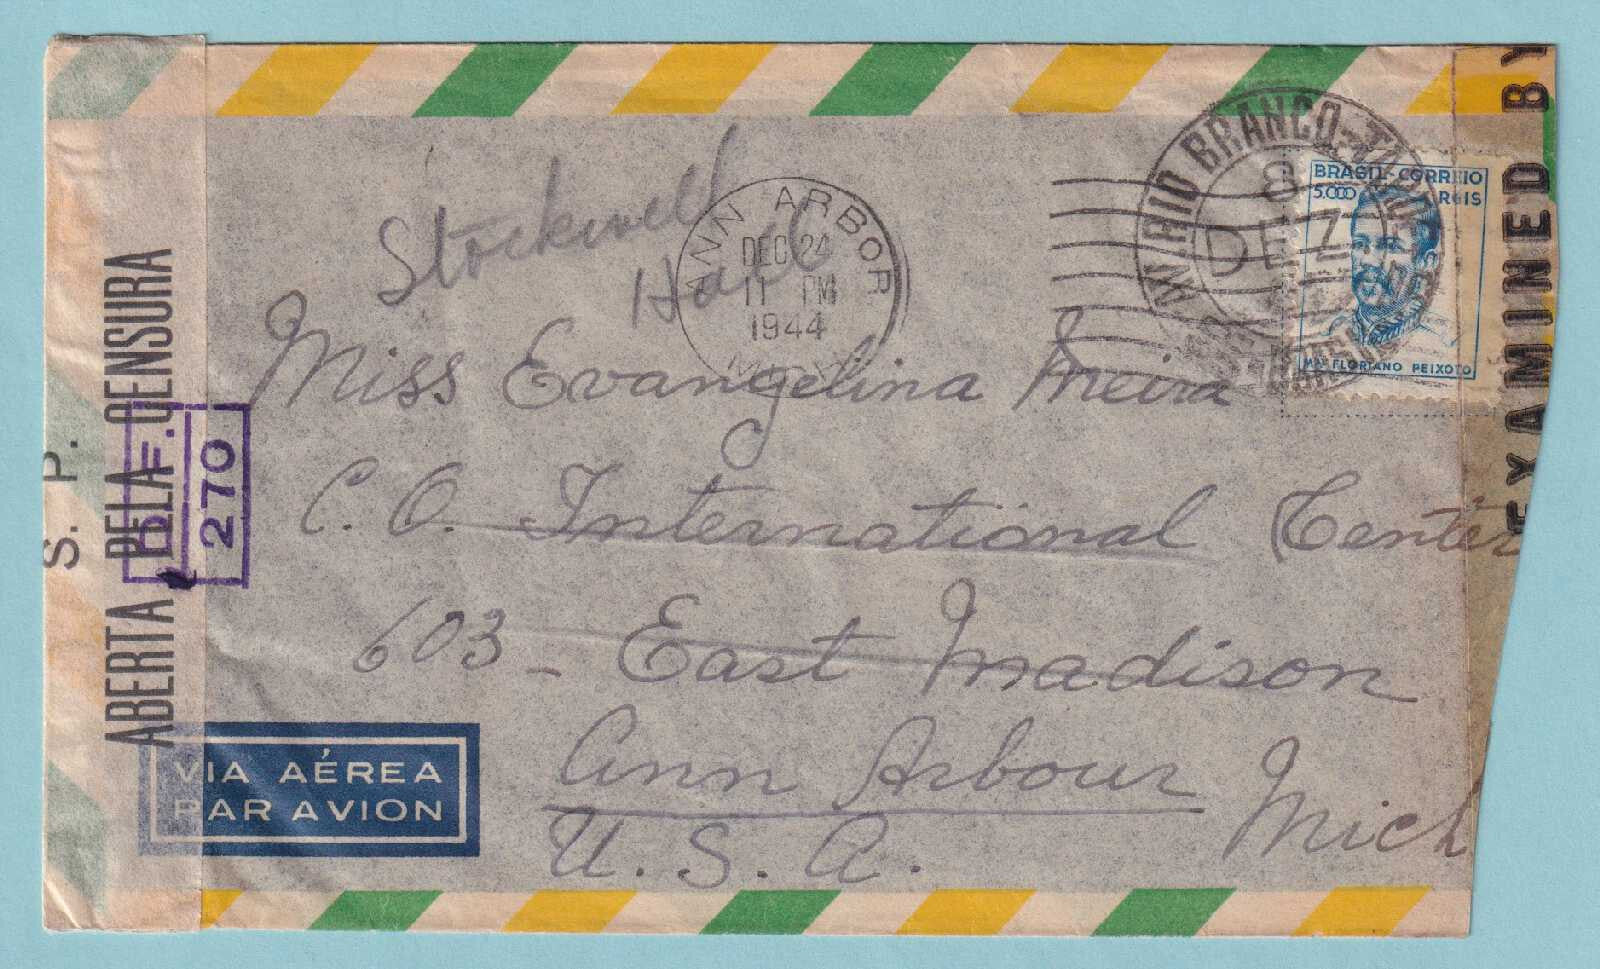 Stockwell
Hall
ANN ARBOR
DEC 24
11 PM
1944
RIO BRANCO
8
DEZ
BRASIL-CORREIO
5.000 REIS
MAL FLORIANO PEIXOTO
EXAMINED BY
Miss Evangelina Meira
C.O. International Center
603 - East Madison
Ann Arbour Mich
U. S. A.
S. P.
ABERTA PELA CENSURA
D.F.
270
VIA AÉREA
PAR AVION